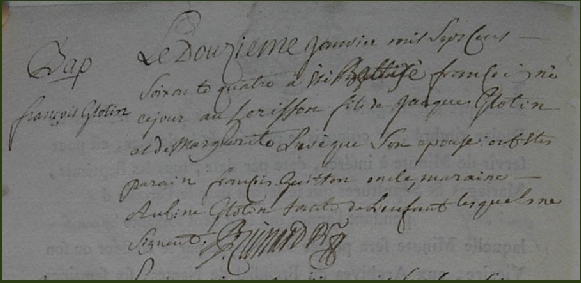 Bap
françois Glotin
Le Douzieme Janvier mil Sept Cens
Soixante quatre a été Battisé françois né
cejour au fils de Jacque Glotin
et de Margueritte Leveque Son epouse ont estés
parain françois Guitton maraine
Glotin tante de L'enfant lesquels ne
Signent.